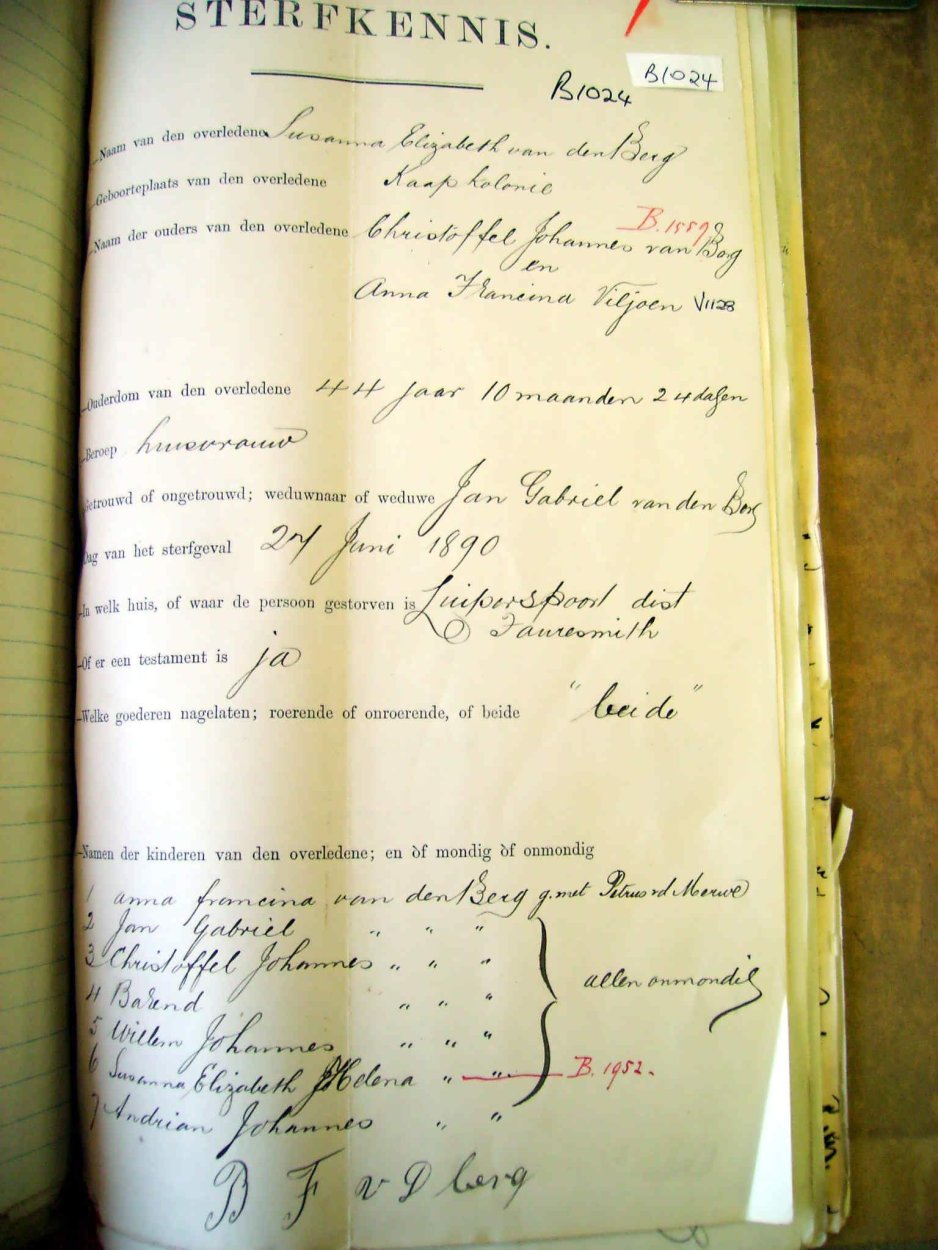 STERFKENNIS.
B1024
B1024
Naam van den overledene Susanna Elizabeth van den Berg
Geboorteplaats van den overledene Kaap Kolonie
B.1559
Naam der ouders van den overledene Christoffel Johannes van Berg
en
Anna Francina Viljoen V1128
Ouderdom van den overledene 44 jaar 10 maanden 24 dagen
Beroep huisvrouw
Getrouwd of ongetrouwd; weduwnaar of weduwe Jan Gabriel van den Berg
Dag van het sterfgeval 27 Juni 1890
In welk huis, of waar de persoon gestorven is Luiperspoort dist
Fauresmith
Of er een testament is ja
Welke goederen nagelaten; roerende of onroerende, of beide "beide"
Namen der kinderen van den overledene; en òf mondig òf onmondig
1 anna francina van den Berg g. met Petrus vd Merwe
2 Jan Gabriel " " "
3 Christoffel Johannes " " "
allen onmondig
4 Barend " " "
5 Willem Johannes " " "
6 Susanna Elizabeth Helena " " B.1952.
7 Andrian Johannes " "
B F v D berg